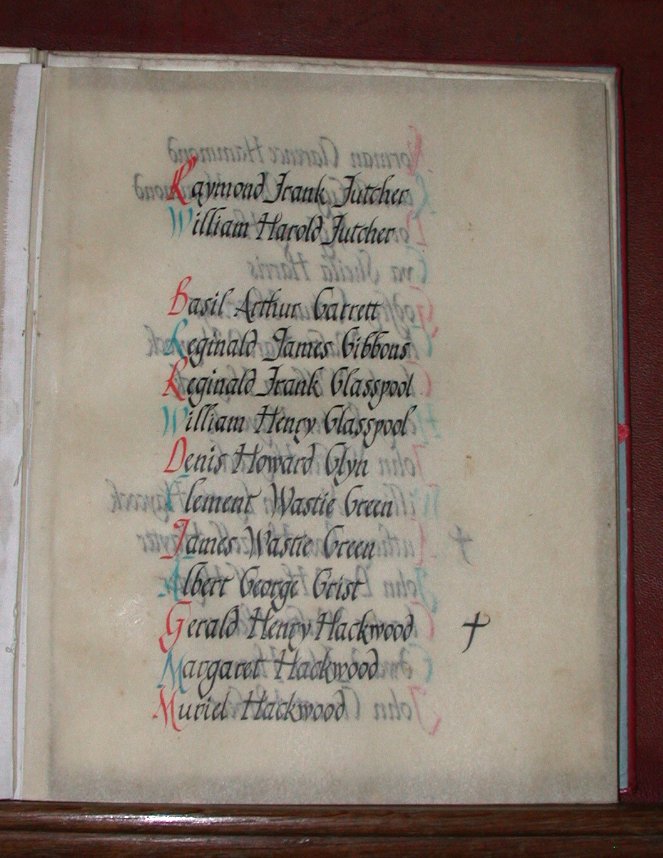 Raymond Frank Futcher
William Harold Futcher
Basil Arthur Garrett
Reginald James Gibbons
Reginald Frank Glasspool
William Henry Glasspool
Denis Howard Glyn
Clement Wastie Green
James Wastie Green
Albert George Grist
Gerald Henry Hackwood †
Margaret Hackwood
Muriel Hackwood